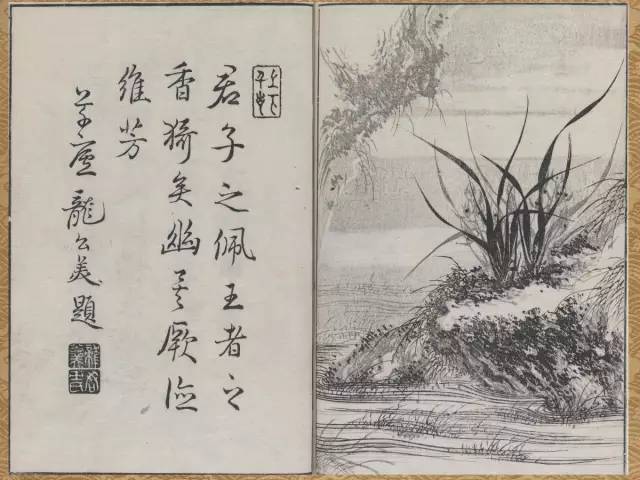 君子之佩王者之
香猗矣幽厥德
維芳
草廬龍公美題